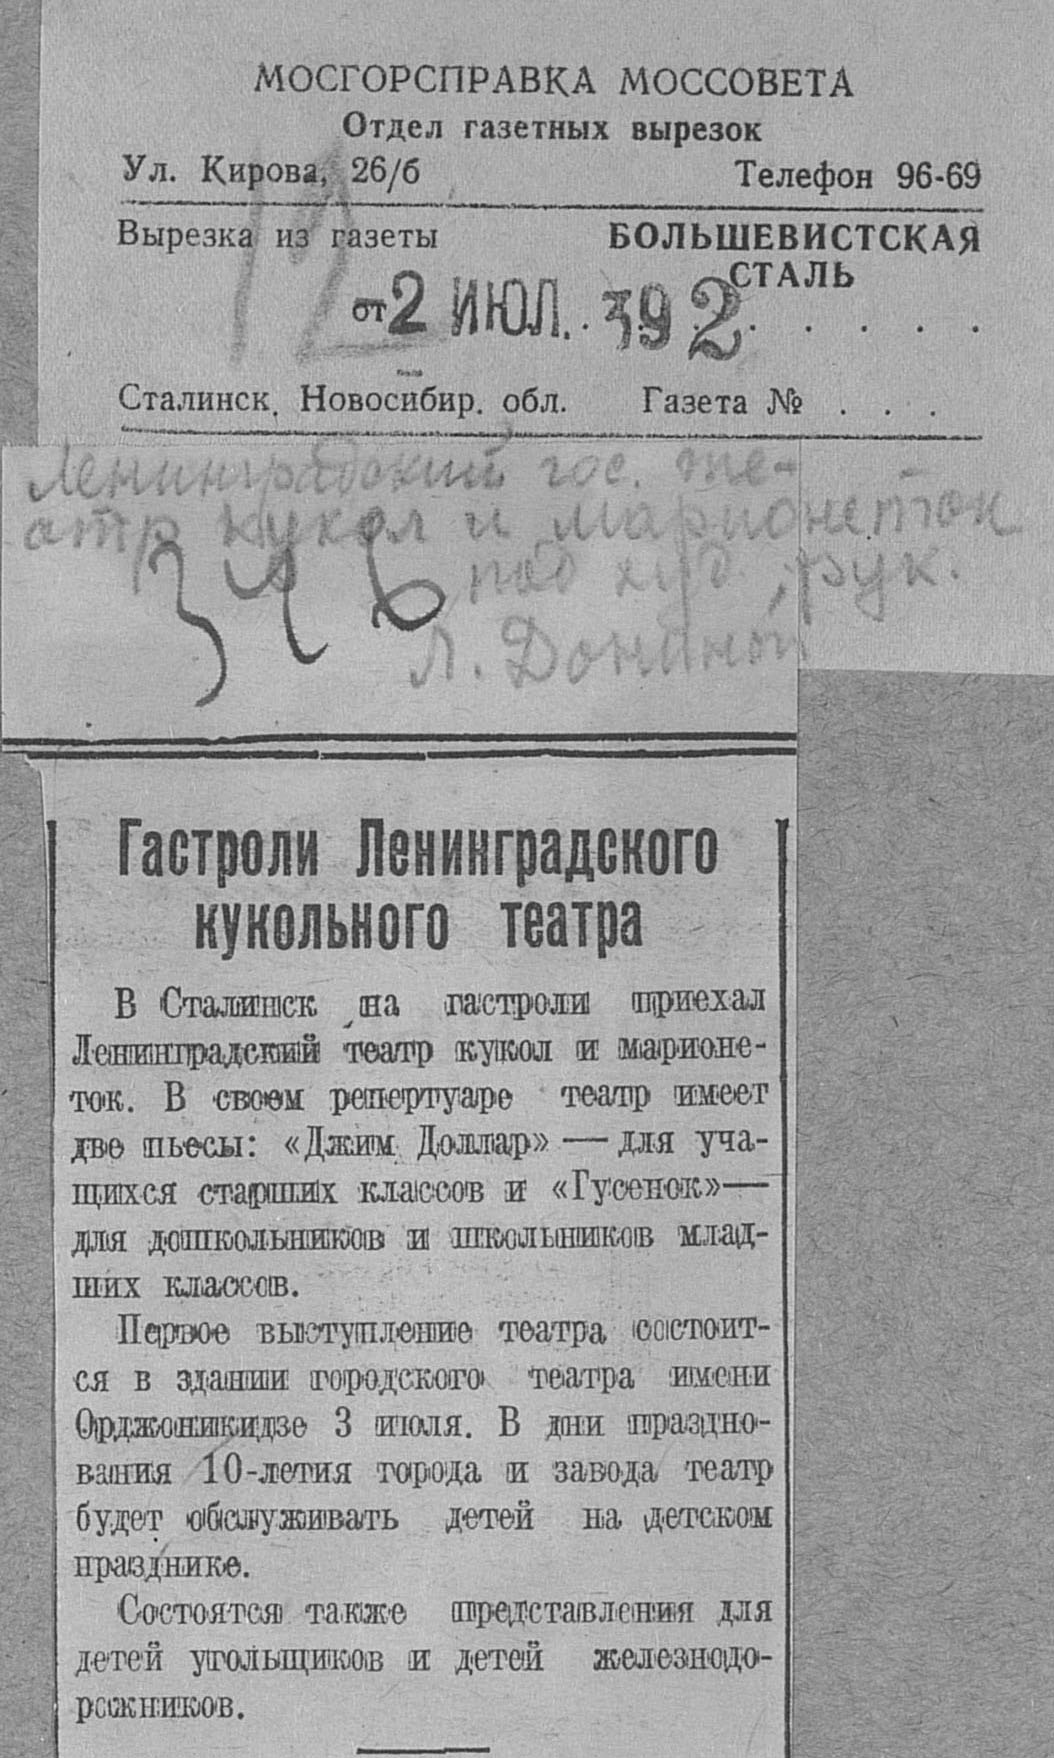 МОСГОРСПРАВКА МОССОВЕТА
Отдел газетных вырезок
Ул. Кирова, 26/б Телефон 96-69
Вырезка из газеты БОЛЬШЕВИСТСКАЯ
СТАЛЬ
от 2 ИЮЛ. 39 2
12
Сталинск, Новосибир. обл. Газета № . . .
Ленинградский гос. те-
атр кукол и марионеток
под худ. рук.
Л. Дониной
Гастроли Ленинградского
кукольного театра
В Сталинск на гастроли приехал
Ленинградский театр кукол и марионе-
ток. В своем репертуаре театр имеет
две пьесы: «Джим Доллар» — для уча-
щихся старших классов и «Гусенок» —
для дошкольников и школьников млад-
ших классов.
Первое выступление театра состоит-
ся в здании городского театра имени
Орджоникидзе 3 июля. В дни праздно-
вания 10-летия города и завода театр
будет обслуживать детей на детском
празднике.
Состоятся также представления для
детей угольщиков и детей железнодо-
рожников.